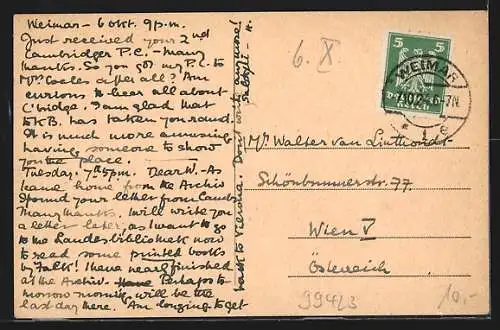 Weimar – 6 Okt. 9 p.m.
Just received your 2nd
Cambridger P.C. – Many
thanks. So you got my P.C. to
Mrs. Coales after all? Am
curious to hear all about
C'bridge. I am glad that
K.B. has taken you round.
It is much more amusing
having someone to show
you the place.
Tuesday. 7th 5 p.m. Dear W. – As
I came home from the Archiv
I found your letter from Camb.
Many thanks. I will write you
a letter later, as I want to go
to the Landesbibliothek now
to read some printed books
by Falk! I have nearly finished
at the Archiv. Perhaps to-
morrow morning will be the
last day there. Am longing to get
back to Vienna. Don't write anymore!
6. X.
5
5
WEIMAR
Mr. Walter van
Schönbrunnerstr. 77
Wien V
Österreich
99423
10,-